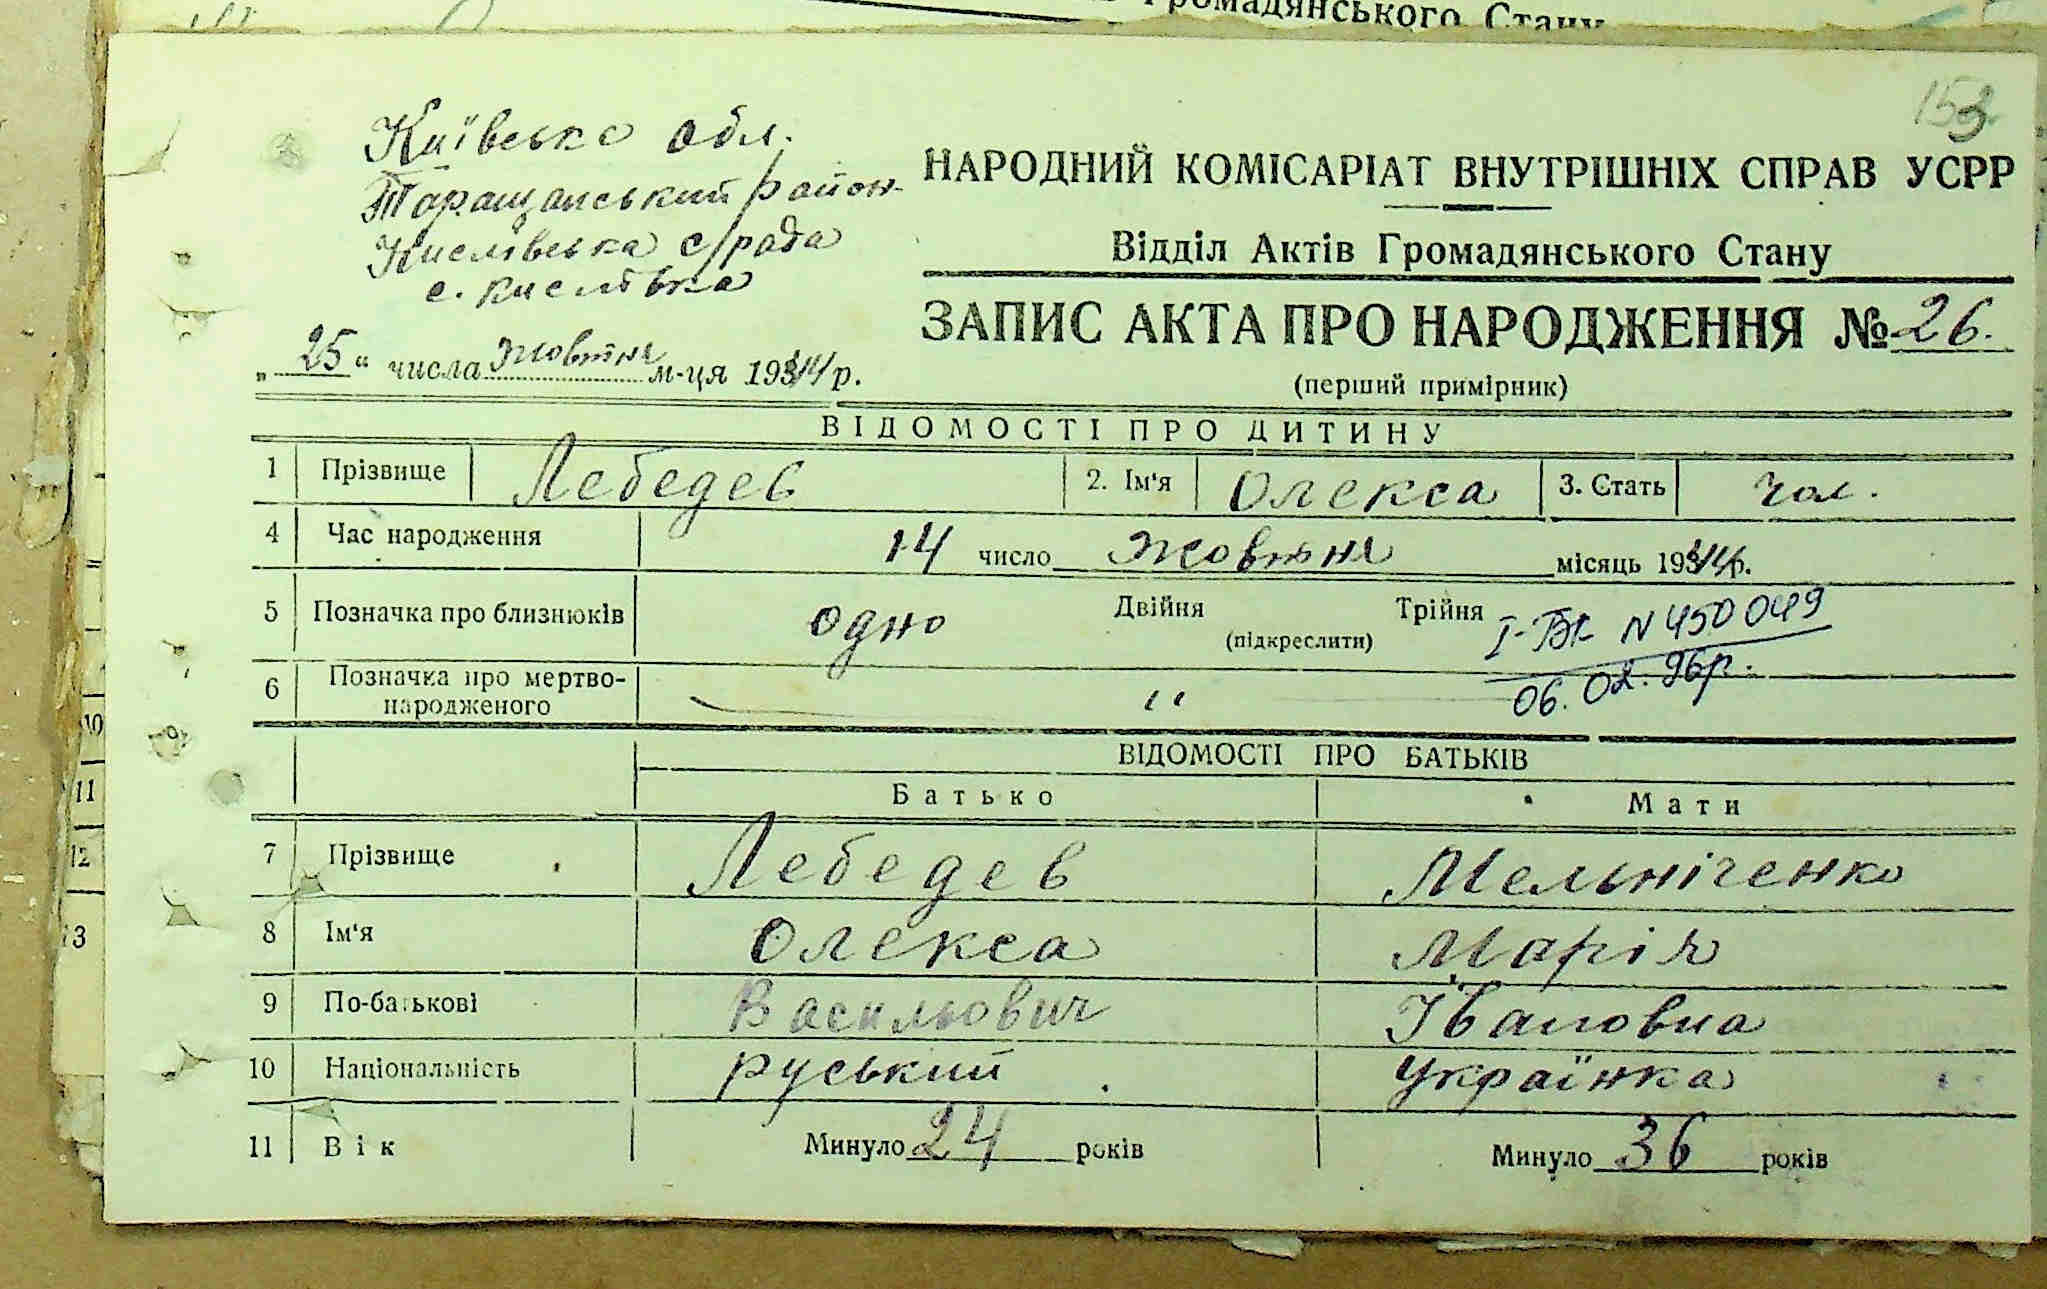 Громадянського Стану
153
Київська обл.
Таращанський район
Кислівська с/рада
с. Кислівка
НАРОДНИЙ КОМІСАРІАТ ВНУТРІШНІХ СПРАВ УСРР
Відділ Актів Громадянського Стану
ЗАПИС АКТА ПРО НАРОДЖЕННЯ № 26.
(перший примірник)
„25“ числа жовтня м-ця 1944 р.
ВІДОМОСТІ ПРО ДИТИНУ
1 Прізвище Лебедев 2. Ім'я Олекса 3. Стать чол.
4 Час народження 14 число жовтня місяць 1944р.
5 Позначка про близнюків одно Двійня Трійня
(підкреслити)
І-БК N 450049
06.02.96р.
6 Позначка про мертво-
народженого "
ВІДОМОСТІ ПРО БАТЬКІВ
Батько Мати
7 Прізвище Лебедев Мельніченко
8 Ім'я Олекса Марія
9 По-батькові Васильович Івановна
10 Національність руський Українка
11 Вік Минуло 24 років Минуло 36 років
10
11
12
13